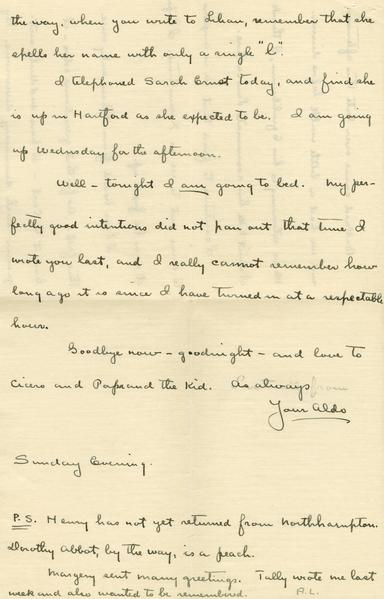 the way, when you write to Lilian, remember that she
spells her name with only a single "l".
I telephoned Sarah Ernst today, and find she
is up in Hartford as she expected to be. I am going
up Wednesday for the afternoon.
Well - tonight I am going to bed. My per-
fectly good intentions did not pan out that time I
wrote you last, and I really cannot remember how
long ago it is since I have turned in at a respectable
hour.
Goodbye now - goodnight - and love to
Cicero and Papa and the Kid. As always
Your Aldo
Sunday Evening.
P.S. Henry has not yet returned from Northhampton.
Dorothy Abbot, by the way, is a peach.
Margery sent many greetings. Tally wrote me last
week and also wanted to be remembered. A.L.